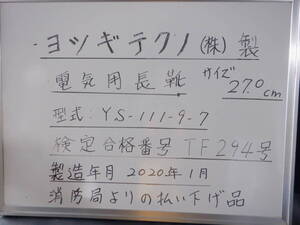 ヨツギテクノ(株)製
電気用長靴 サイズ 27.0cm
型式:YS-111-9-7
検定合格番号 TF294号
製造年月 2020年1月
消防局よりの払い下げ品